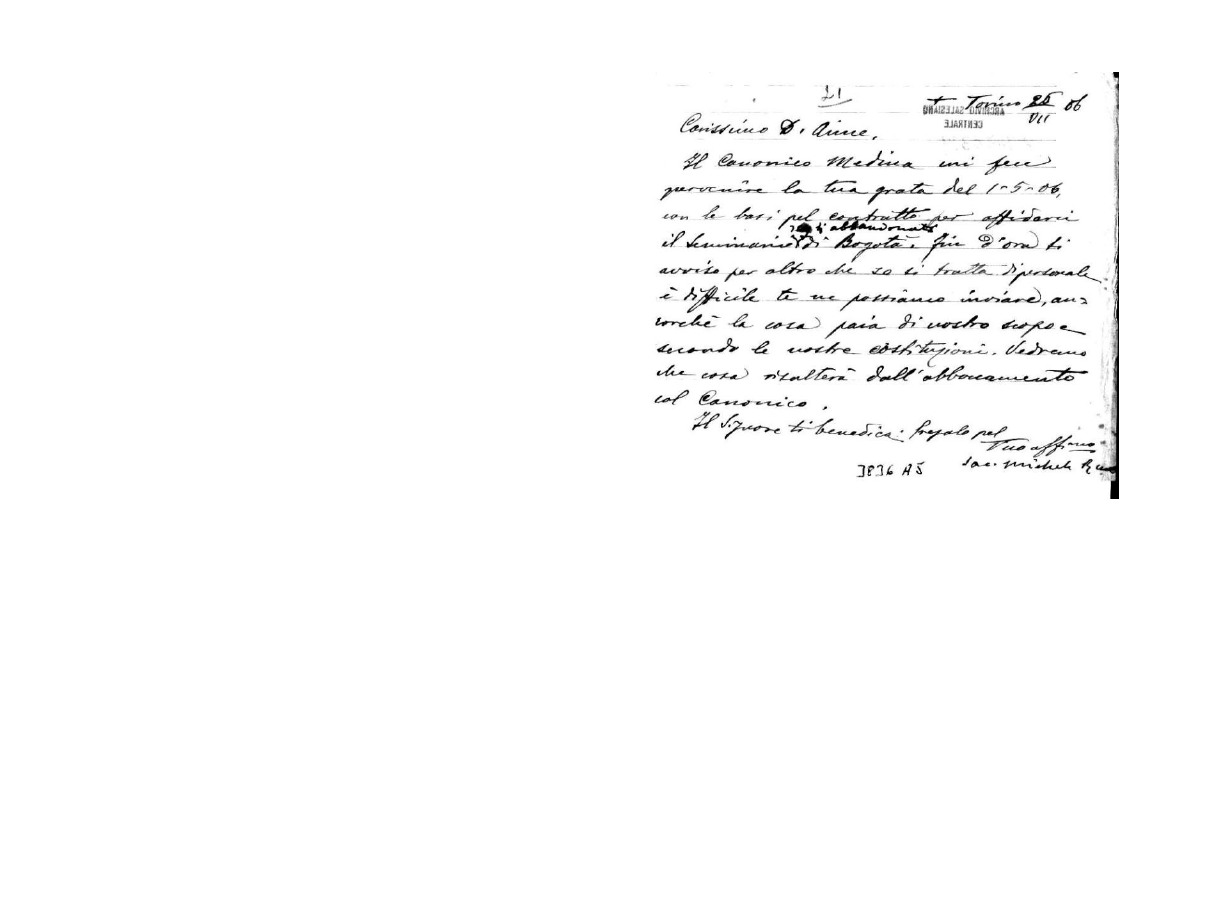 21
+ Torino 25/VII 06
ARCHIVIO SALESIANO
CENTRALE
Carissimo D. Aime,
Il Canonico Medina mi fece
pervenire la tua grata del 1-5-06,
con le basi pel contratto per affidarci
abbandonato
il Seminario di Bogotà. Fin d'ora ti
avviso per altro che se si tratta di personale
è difficile te ne possiamo inviare, an=
corchè la cosa paia di nostro scopo e
secondo le nostre costituzioni. Vedremo
che cosa risulterà dall'abboccamento
col Canonico.
Il Signore ti benedica. Pregalo pel
Tuo aff.mo
Sac. Michele Rua
3836 A5